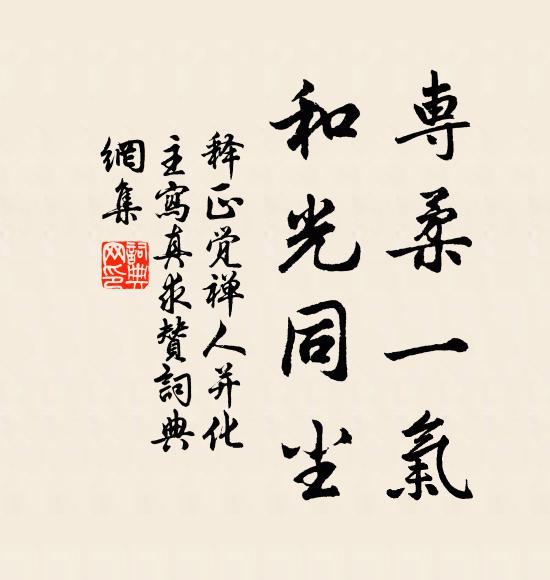 専柔一氣
和光同尘
释正觉禅人并化
主寫真求赞詞典
網集
詞典
网印